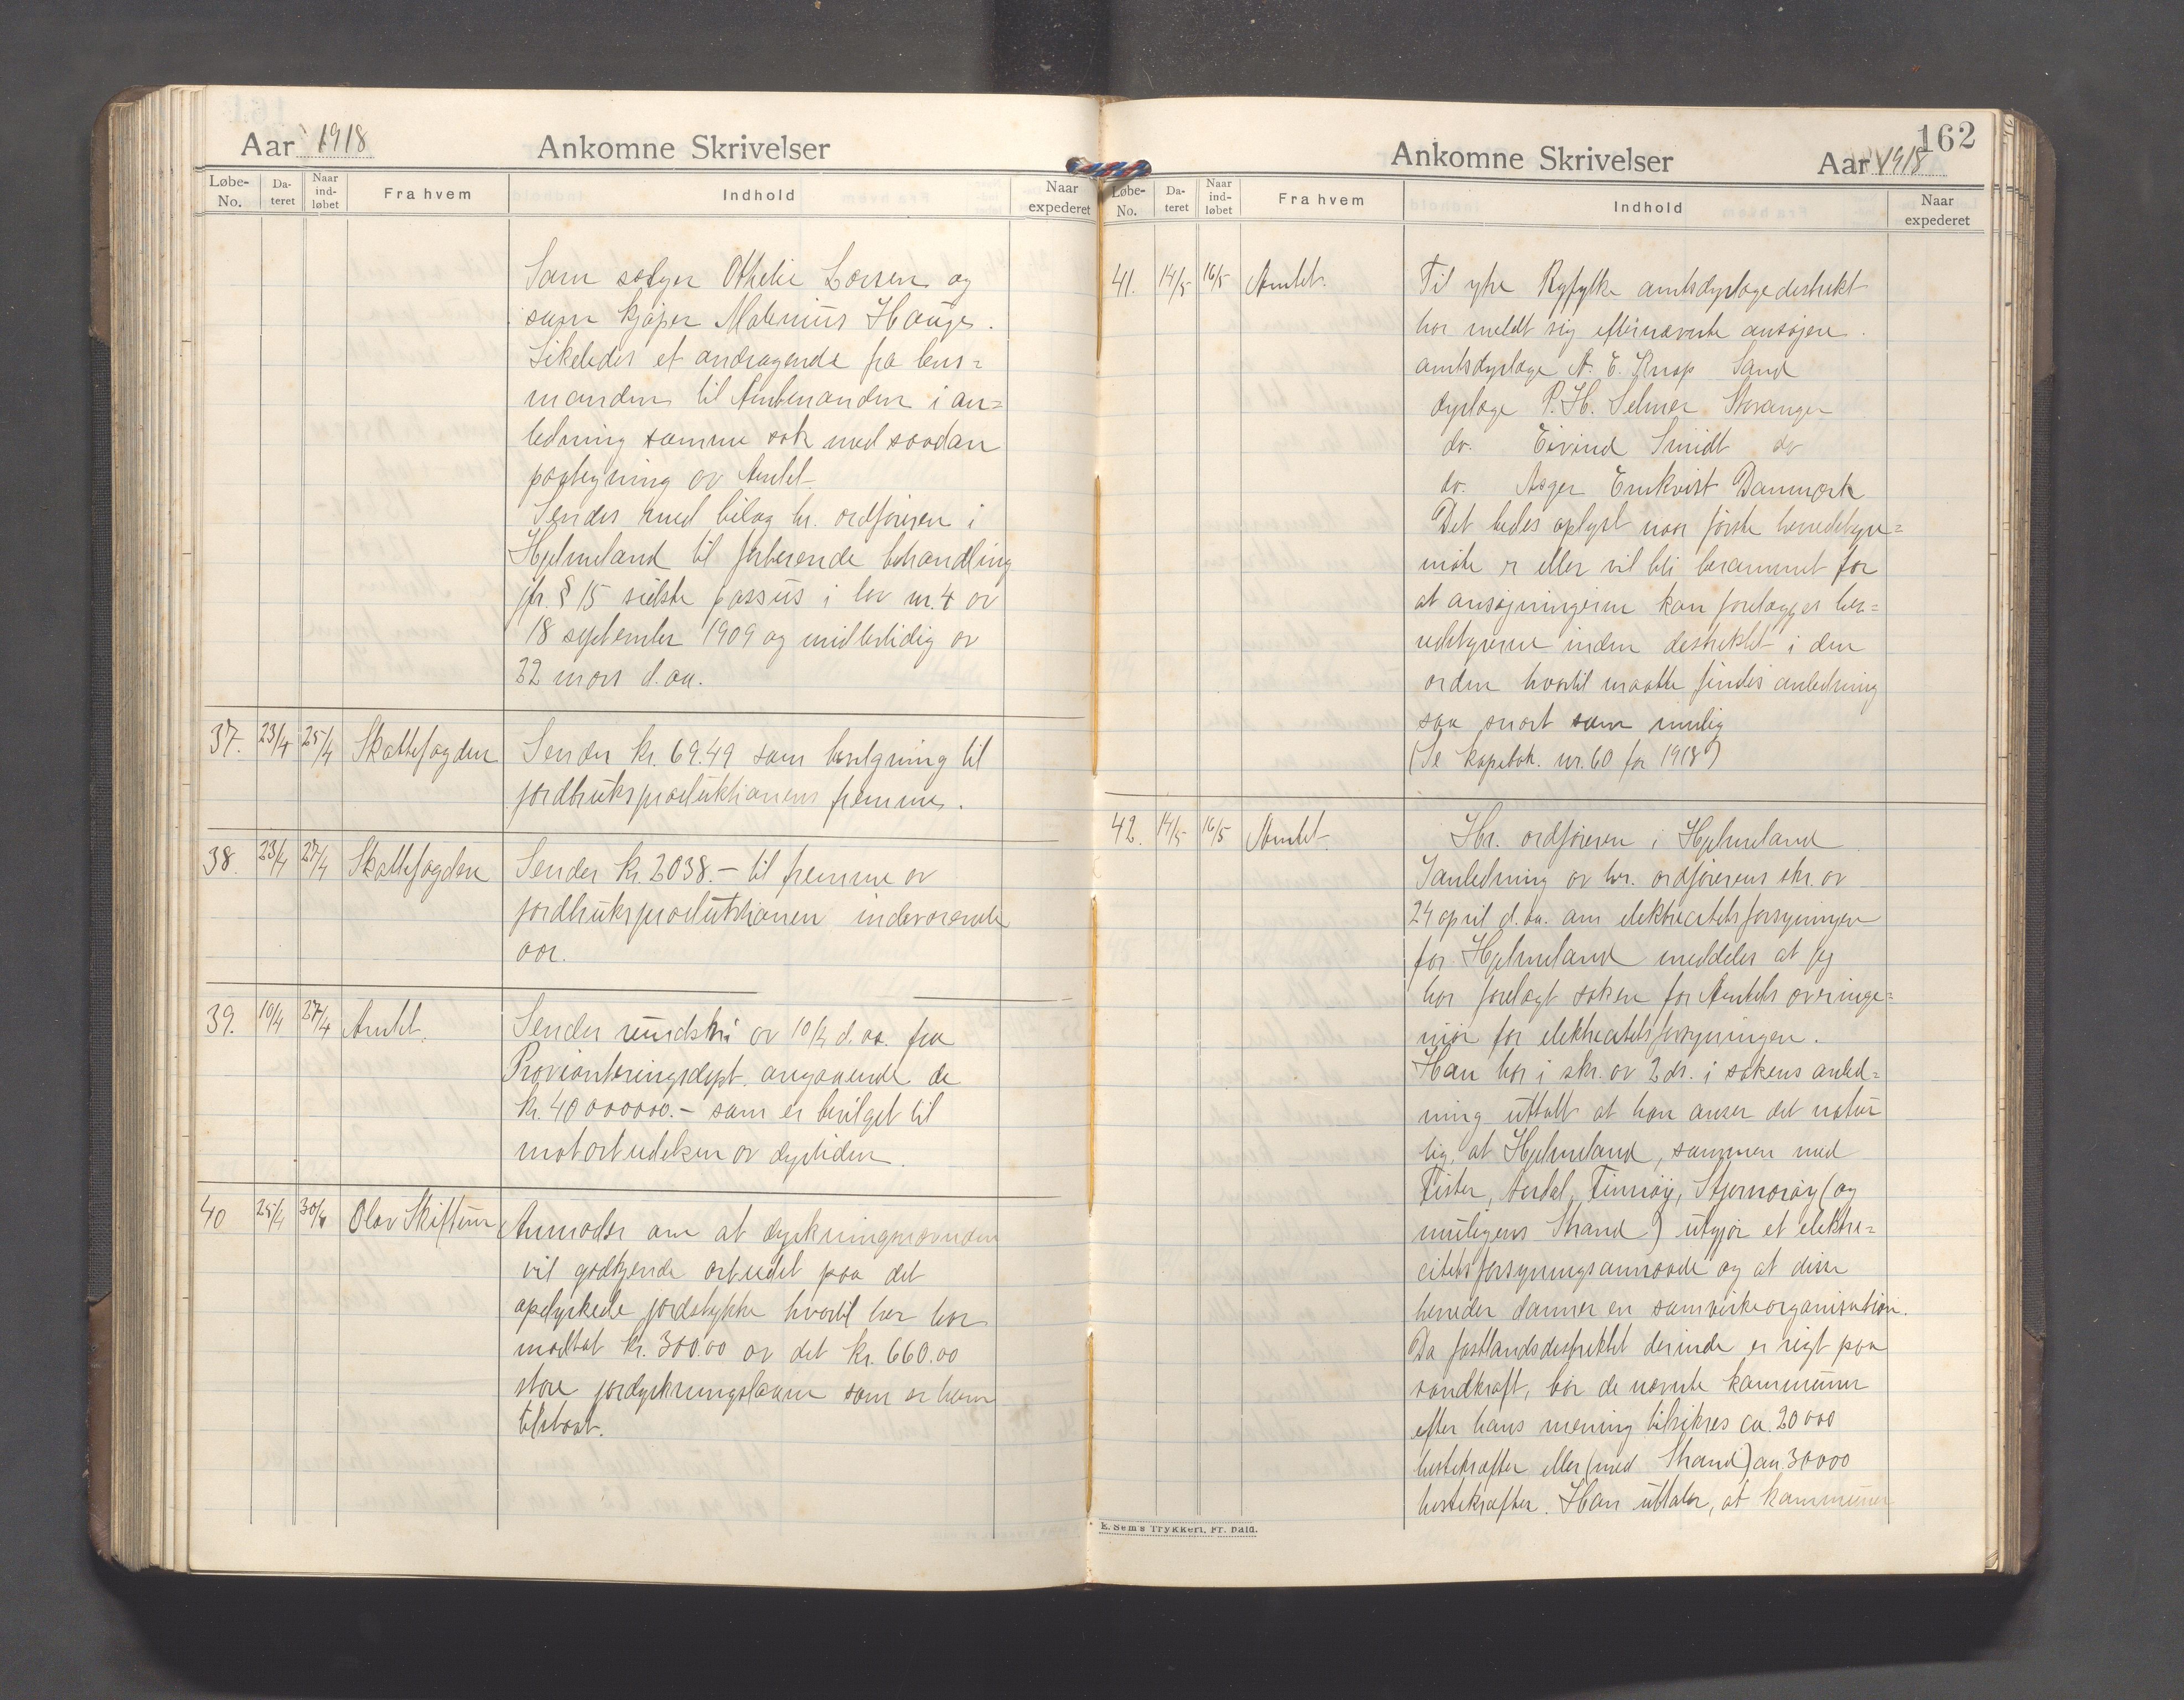 Aar 1918
Ankomne Skrivelser
Løbe-No. Da-teret Naar ind-løbet Fra hvem Indhold Naar expederet
Som sælger Othelie Larsen og
som kjøper Matenius Hauge.
Likeledes et andragende fra lens=
manden til Amtmanden i an=
ledning samme sak med saadan
paategning av Amtet.
Sendes med bilag hr. ordføreren i
Hjelmeland til forberende behandling
jfr. § 15 sidste passus i lov nr. 4 av
18 september 1909 og midlertidig av
22 mars d.aa.
37. 23/4 25/4 Skattefogden Sender kr. 69.49 som bevilgning til
jordbruksproduktionens fremme.
38. 23/4 27/4 Skattefogden Sender kr. 2038.- til fremme av
jordbruksproduktionen indeværende
aar.
39. 10/4 27/4 Amtet. Sender rundskri av 10/4 d.aa. fra
Provianteringsdept. angaaende de
kr. 40 000000.- som er bevilget til
motarbeidelsen av dyrtiden.
40 25/4 30/4 Olav Skiftun Anmoder om at dyrkningsnævnden
vil godkjende arbeidet paa det
opdyrkede jordstykke hvortil her har
mottat kr. 300.00 av det kr. 660.00
store jordyrkningslaan som er ham
tilstaat.
162
Ankomne Skrivelser
Aar 1918
Løbe-No. Da-teret Naar ind-løbet Fra hvem Indhold Naar expederet
41. 14/5 16/5 Amtet. Til ytre Ryfylke amtsdyrlægedistrikt
har meldt sig efternævnte ansøjere.
amtsdyrlæge A. E. Knap Sand
dyrlæge P. H. Selmer Stavanger
do. Eivind Smidt do
do. Asger Enkvist Danmark
Det bedes oplyst naar første herredstyre=
møte er eller vil bli berammet for
at ansøjningerne kan forelægges her=
redstyrerne inden destriktet i den
orden hvortil maatte findes anledning
saa snart som mulig
(Se kopibok. nr. 60 for 1918)
42. 14/5 16/5 Amtet. Hr. ordføreren i Hjelmeland
I anledning av hr. ordførerens skr. av
24 april d.aa. om elektricitetsforsyningen
for Hjelmeland meddeles at jeg
har forelagt saken for Amtets overinge=
niør for elektricitetsforsyningen.
Han har i skr. av 2 ds. i sakens anled=
ning uttalt at han anser det natur
lig, at Hjelmeland, sammen med
Fister, Aardal, Finnøy, Stjernarøy (og
muligens Strand) utgjør et elektri=
citetsforsyningsomraade og at disse
herreder danner en samvirkeorganisation.
Da fastlandsdistriktet derinde er rigt paa
vandkraft, bør de nævnte kommuner
efter hans mening tilsikres ca. 20000
hestekræfter eller (med Strand) ca. 30000
hestekræfter. Han uttaler, at kommuner
E. Sem's Trykkeri, Fr. hald.